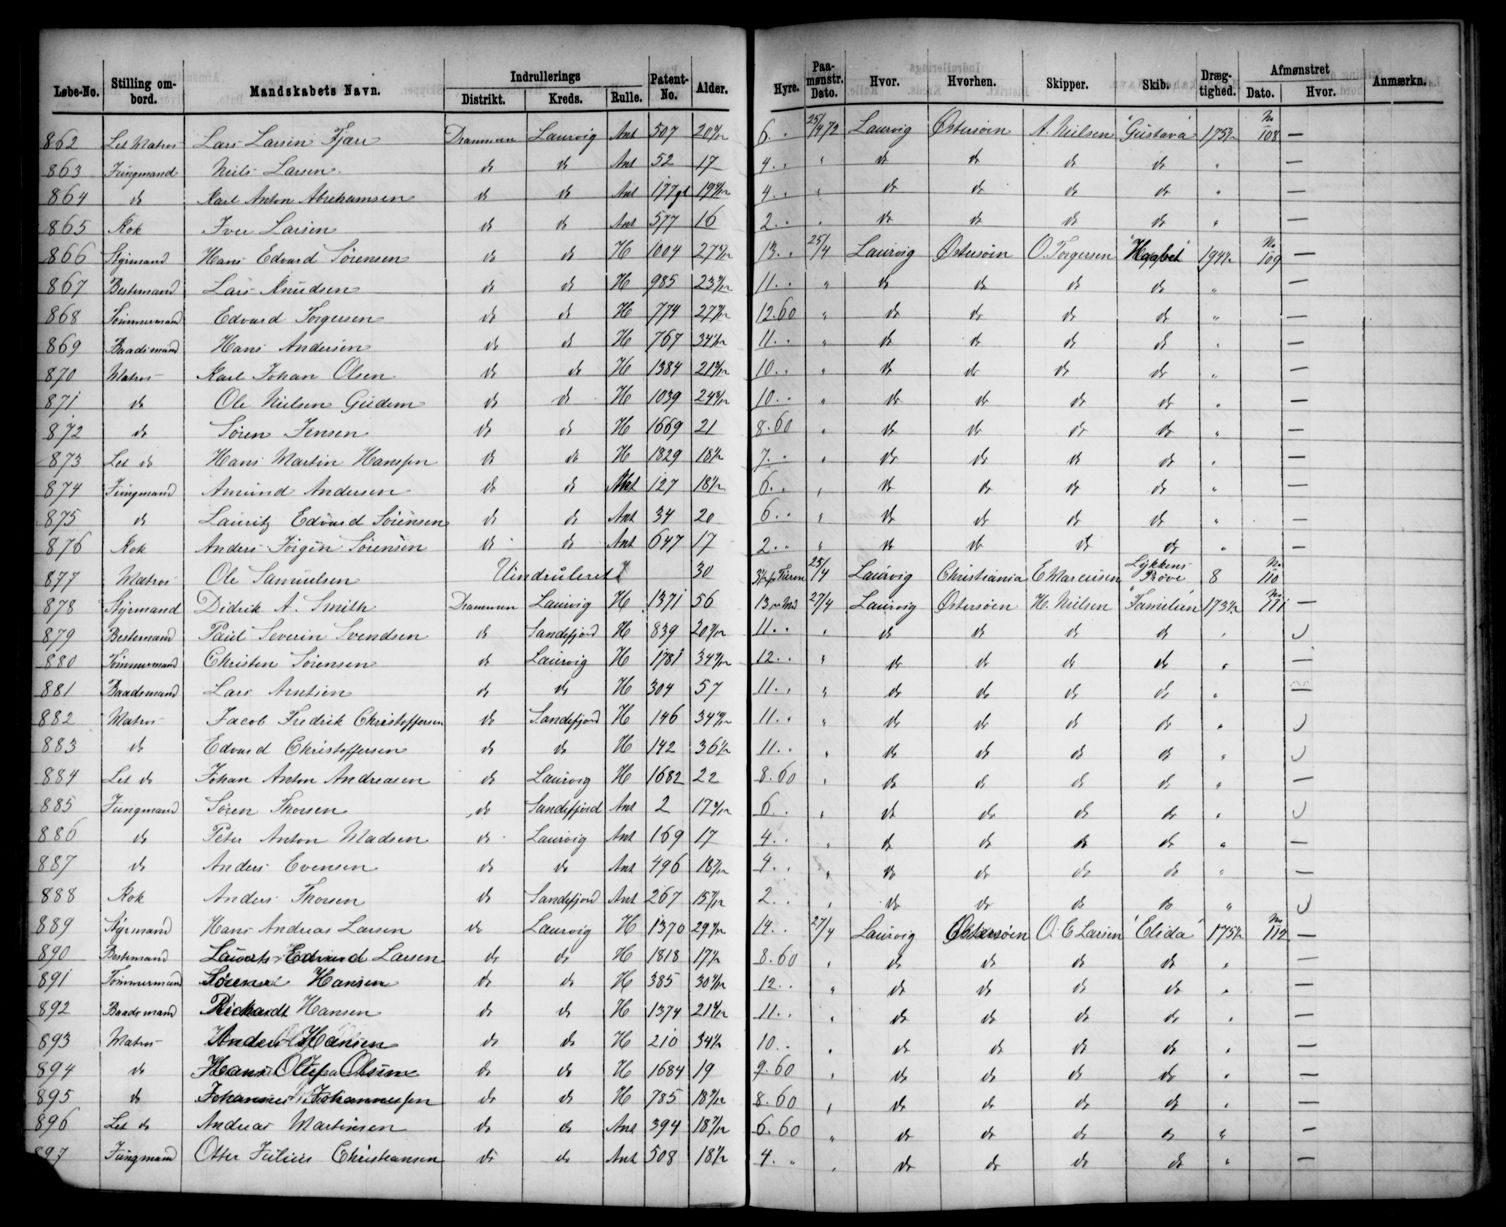 Løbe-No. Stilling ombord. Mandskabets Navn. Indrullerings Distrikt. Kreds. Rulle. Patent-No. Alder. Hyre. Paamønstr. Dato. Hvor. Hvorhen. Skipper. Skib. Drægtighed. Afmønstret Dato. Hvor. Anmærkn.
862 Let Matros Lars Larsen Fjære Drammen Laurvig Ant 507 20 6 .. 25/4 72 Laurvig Østersøen A. Nielsen "Gustava" 175½ No 108 —
863 Jungmand Niels Larsen do do Ant 52 17 4 .. " do do do do " —
864 do Karl Anton Abrahamsen do do Ant 177 19 4 .. " do do do do " —
865 Kok Iver Larsen do do Ant 577 16 2 .. " do do do do " —
866 Styrmand Hans Edvard Sørensen do do H 1004 27 13 .. 25/4 Laurvig Østersøen O. Torgersen "Haabet" 194½ No 109 —
867 Bestemand Lars Knudsen do do H 985 23 11 .. " do do do do " —
868 Tømmermand Edvard Torgersen do do H 774 27 12.60 " do do do do " —
869 Baadsmand Hans Andersen do do H 767 34 11 .. " do do do do " —
870 Matros Karl Johan Olsen do do H 1384 21 10 .. " do do do do " —
871 do Ole Nielsen Gudem do do H 1039 24 10 .. " do do do do " —
872 do Søren Jensen do do H 1669 21 8.60 " do do do do " —
873 Let do Hans Martin Hanssen do do H 1829 18 7 .. " do do do do " —
874 Jungmand Amund Andersen do do Ant 127 18 6 .. " do do do do " —
875 do Lauritz Edvard Sørensen do do Ant 34 20 6 .. " do do do do " —
876 Kok Anders Jørgen Sørensen do do Ant 647 17 2 .. " do do do do " —
877 Matros Ole Samuelsen Uindrulleret 30 25/4 Laurvig Christiania E Marcusen Lykkens Prøve 8 No 110
878 Styrmand Didrik A. Smith Drammen Laurvig H 1371 56 13 27/4 Laurvig Østersøen H. Nielsen "Familien" 173½ No 111 —
879 Bestemand Paul Severin Svendsen do Sandefjord H 839 20 11 .. " do do do do "
880 Tømmermand Christen Sørensen do Laurvig H 1781 34 12 .. " do do do do " —
881 Baadsmand Lars Arntsen do do H 304 57 11 .. " do do do do " —
882 Matros Jacob Fredrik Christoffersen do Sandefjord H 146 34 11 .. " do do do do "
883 do Edvard Christoffersen do do H 142 36 11 .. " do do do do "
884 Let do Johan Anton Andreasen do Laurvig H 1682 22 8.60 " do do do do " —
885 Jungmand Søren Thorsen do Sandefjord Ant 2 17 6 .. " do do do do "
886 do Peter Anton Madsen do Laurvig Ant 169 17 4 .. " do do do do " —
887 do Anders Evensen do do Ant 496 18 4 .. " do do do do " —
888 Kok Anders Thorsen do Sandefjord Ant 267 15 2 .. " do do do do "
889 Styrmand Hans Andreas Larsen do Laurvig H 1370 29 14 .. 27/4 Laurvig Østersøen O. E Larsen "Elida" 175½ No 112 —
890 Bestemand Edvard Larsen do do H 1818 17 8.60 " do do do do " —
891 Tømmermand Hansen do do H 385 30 12 .. " do do do do " —
892 Baadsmand Richardt Hansen do do H 1374 21 11 .. " do do do do " —
893 Matros Anders Hansen do do H 210 34 10 .. " do do do do " —
894 do Hans Olsen do do H 1684 19 9.60 " do do do do " —
895 do Johannes Johannessen do do H 785 18 8.60 " do do do do " —
896 Let do Andreas Martinsen do do Ant 394 18 6.60 " do do do do " —
897 Jungmand Otter Julius Christiansen do do Ant 508 18 4 .. " do do do do " —